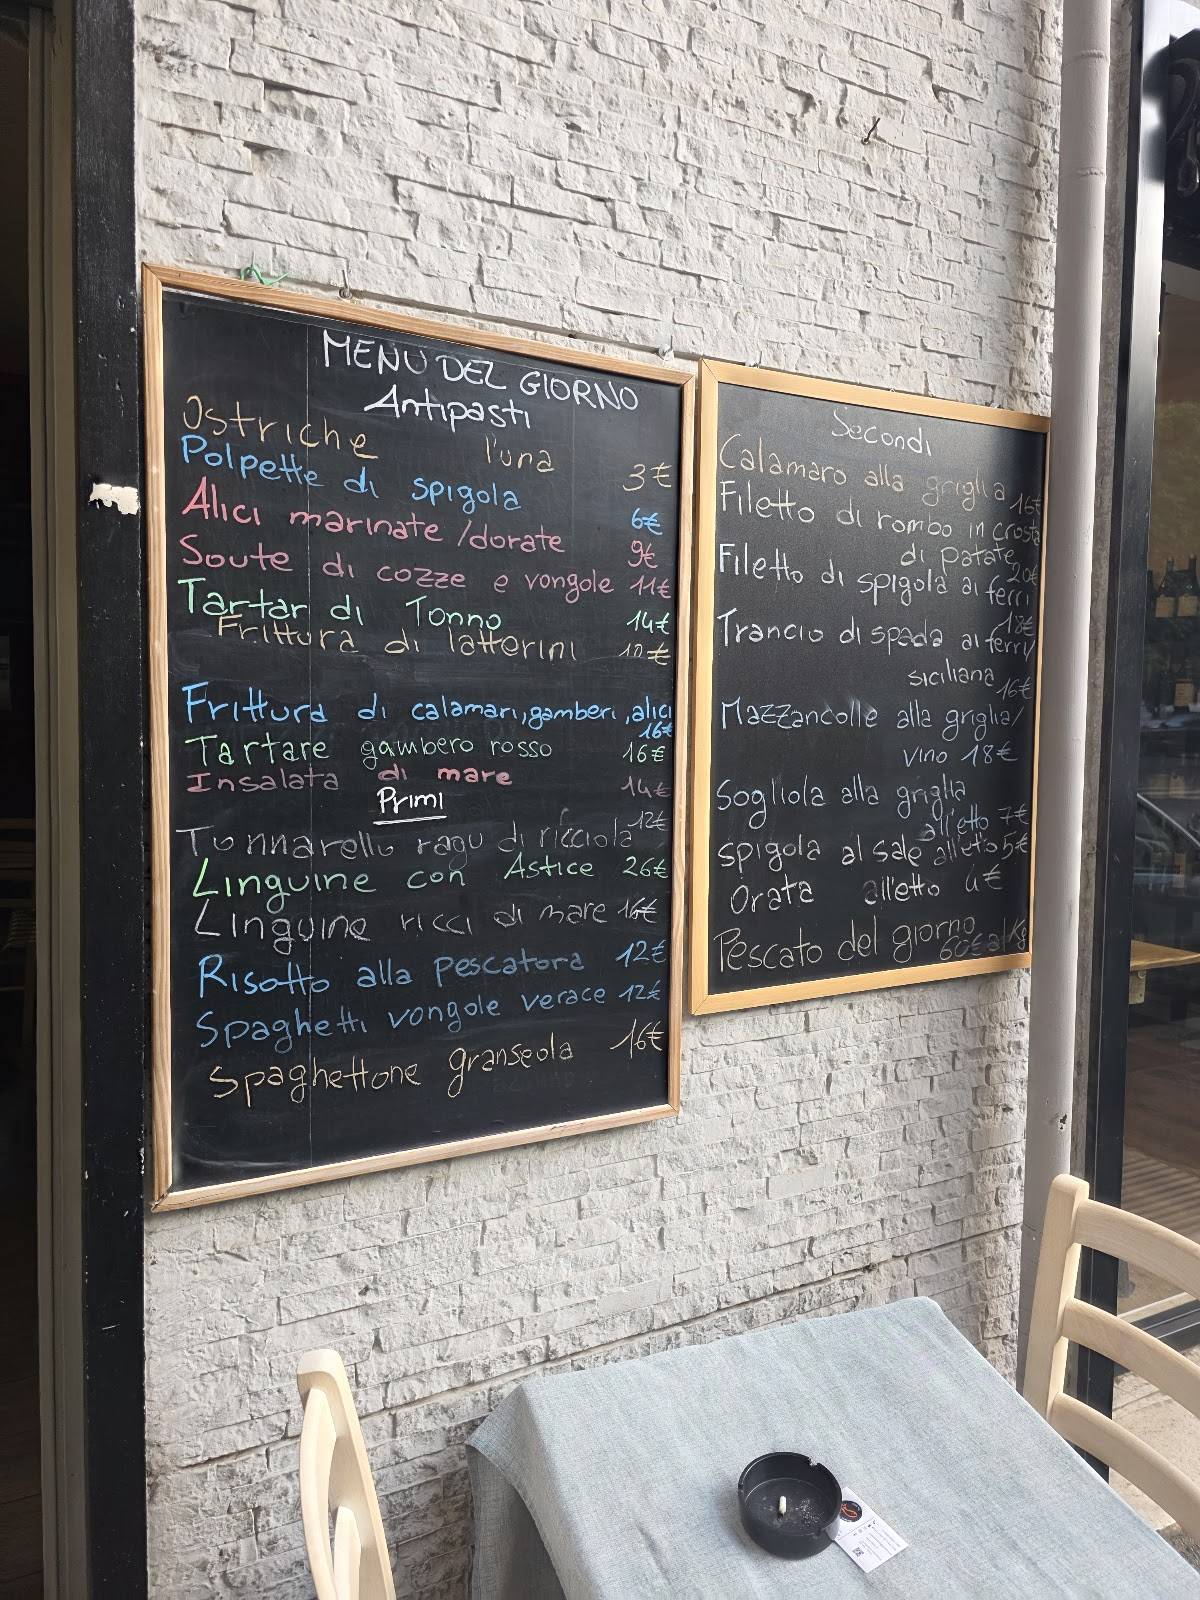 MENU DEL GIORNO
Antipasti
Ostriche l'una 3€
Polpette di spigola 6€
Alici marinate/dorate 9€
Soute di cozze e vongole 11€
Tartar di Tonno 14€
Frittura di latterini 10€
Frittura di calamari, gamberi, alici
16€
Tartare gambero rosso 16€
Insalata di mare 14€
Primi
Tonnarello ragu di ricciola 12€
Linguine con Astice 26€
Linguine ricci di mare 16€
Risotto alla pescatora 12€
Spaghetti vongole verace 12€
Spaghettone granseola 16€
Secondi
Calamaro alla griglia 16€
Filetto di rombo in crosta
di patate 20€
Filetto di spigola ai ferri
18€
Trancio di spada ai ferri/
siciliana 16€
Mazzancolle alla griglia/
vino 18€
Sogliola alla griglia
all'etto 7€
spigola al sale all'etto 5€
Orata all'etto 4€
Pescato del giorno
60€ al Kg